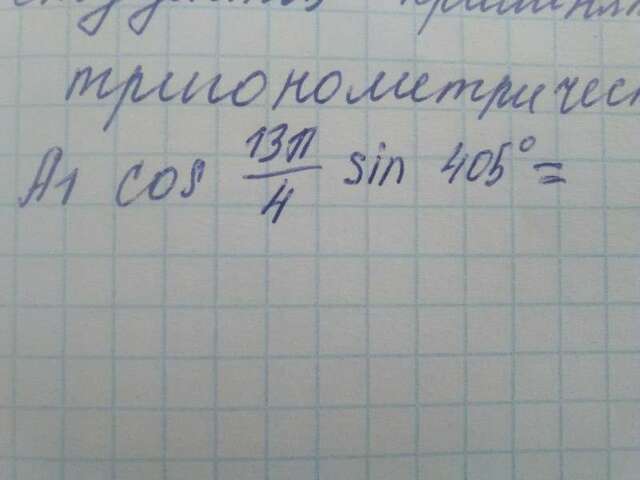 тригонометричес
A1 cos 13π/4 sin 405° =